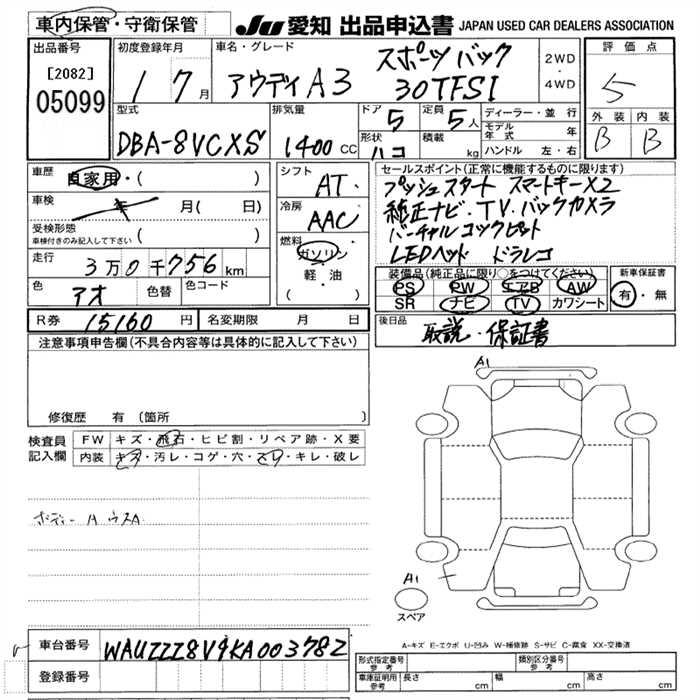 車内保管・守衛保管
JU 愛知 出品申込書 JAPAN USED CAR DEALERS ASSOCIATION
出品番号
[2082]
05099
初度登録年月
1 7月
車名・グレード
アウディ A3 スポーツバック
30TFSI
2WD
・
4WD
評価点
5
外装 内装
B B
型式
DBA-8VCXS
排気量
1400 CC
ドア 5
定員 5 人
形状 ハコ
積載 kg
ディーラー・並行
モデル年式 年
ハンドル 左・右
車歴 自家用・( )
車検 年 月( 日)
受検形態
車検付きのみ記入して下さい ( )
走行 3万0千756km
色 アオ 色替 色コード
シフト AT
冷房 AAC
燃料 ガソリン
軽・油
( )
セールスポイント(正常に機能するものに限ります)
プッシュスタート スマートキーX2
純正ナビ・TV・バックカメラ
バーチャルコックピット
LEDヘッド ドラレコ
装備品(純正品に限り○をつけてください)
PS PW エアB AW
SR ナビ TV カワシート
新車保証書
有・無
R券 15160円 名変期限 月 日
後日品
取説・保証書
注意事項申告欄(不具合内容等は具体的に記入して下さい)
修復歴 有(箇所
検査員記入欄
FW キズ・飛石・ヒビ割・リペア跡・X要
内装 キズ・汚レ・コゲ・穴・スレ・キレ・破レ
ボディー A ウスA
A1
A1
スペア
A-キズ E-エクボ U-凹み W-補修跡 S-サビ C-腐食 XX-交換済
車台番号 WAUZZZ8V9KA003782
登録番号
形式指定番号参考 類別区分番号参考
車庫証明用参考 長さ cm 幅 cm 高さ cm